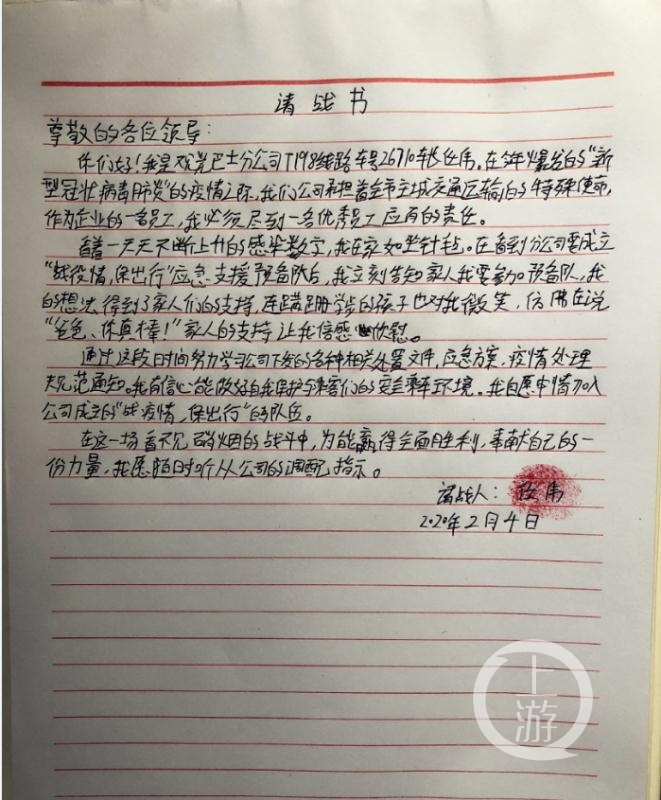 请战书
尊敬的各位领导：
你们好！我是观光巴士分公司T198线路车号26710车长任伟。在今年爆发的“新
型冠状病毒肺炎”的疫情之际，我们公司承担着全市主城交通运输的特殊使命，
作为企业的一名员工，我必须尽到一名优秀员工应有的责任。
看着一天天不断上升的感染数字，我在家如坐针毡。在看到分公司要成立
“战疫情，保出行”应急支援预备队后，我立刻告知家人我要参加预备队，我
的想法得到了家人们的支持，连蹒跚学步的孩子也对我微笑，仿佛在说
“爸爸、你真棒！”家人的支持让我倍感欣慰。
通过这段时间努力学习公司下发的各种相关处置文件，应急方案，疫情处理
规范通知。我有信心能做好自我保护与乘客们的安全乘车环境。我自愿申请加入
公司成立的“战疫情，保出行”的队伍。
在这一场看不见硝烟的战斗中，为能赢得全面胜利，奉献自己的一
份力量，我愿随时听从公司的调配指示。
请战人：任伟
2020年2月4日
上游